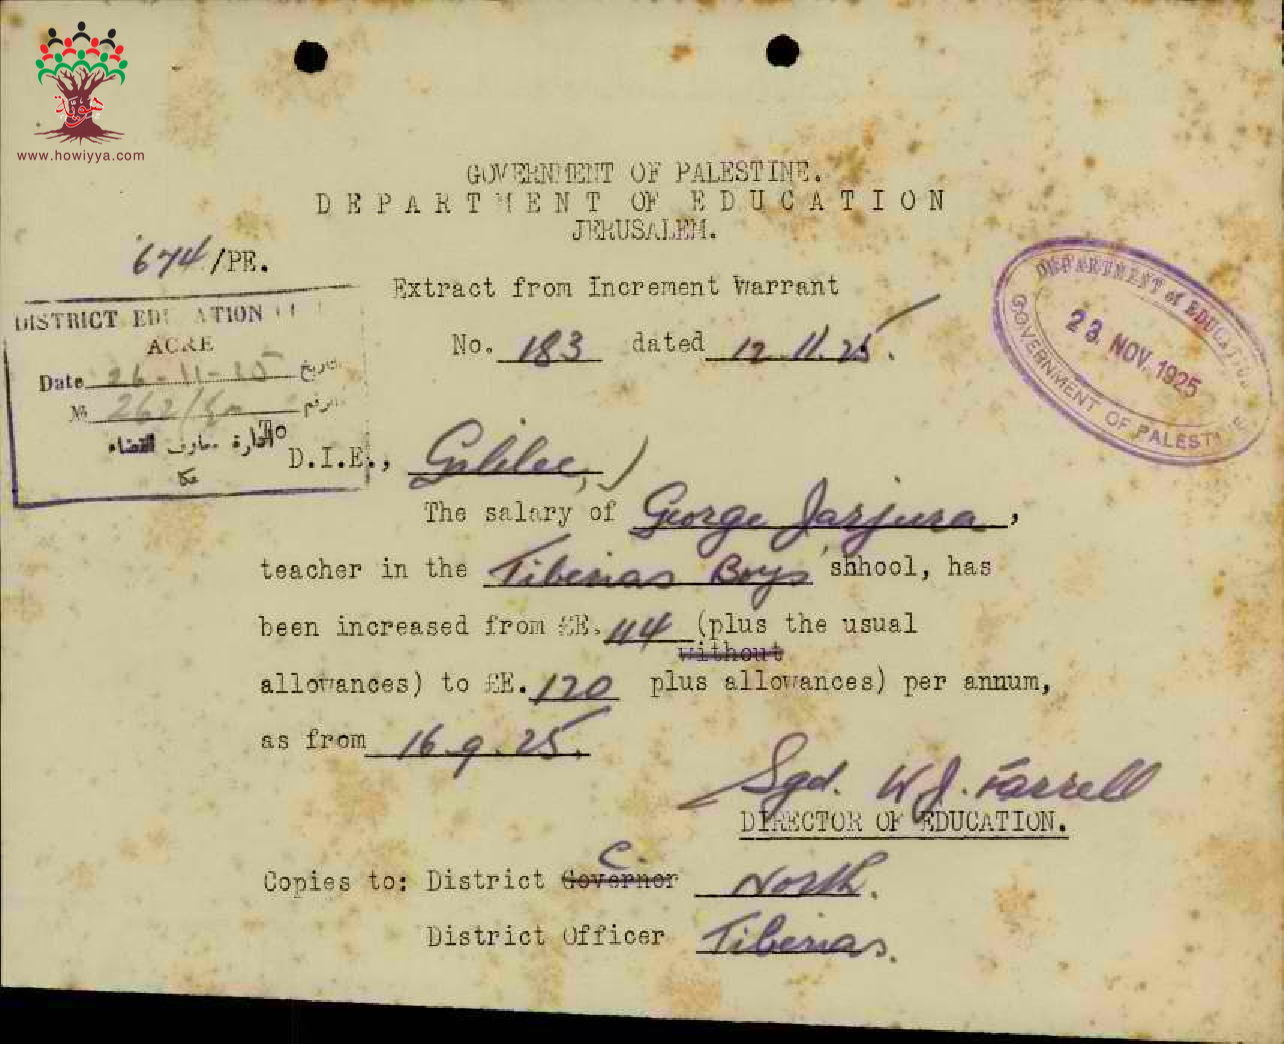 هوية
www.howiyya.com
GOVERNMENT OF PALESTINE.
DEPARTMENT OF EDUCATION
JERUSALEM.
674/PE.
Extract from Increment Warrant
No. 183 dated 12.11.25.
DEPARTMENT of EDUCATION
23 NOV. 1925
GOVERNMENT OF PALESTINE
DISTRICT EDUCATION
ACRE
Date 26-11-25 تاريخ
№ 262/ الرقم
ادارة معارف القضاء
عكا
To
D.I.E., Galilee,
The salary of George Jarjura,
teacher in the Tiberias Boys shhool, has
been increased from £E. 114 (plus the usual
without
allowances) to £E. 120 plus allowances) per annum,
as from 16.9.25.
Sgd. W J. Farrell
DIRECTOR OF EDUCATION.
C.
Copies to: District Governor North.
District Officer Tiberias.